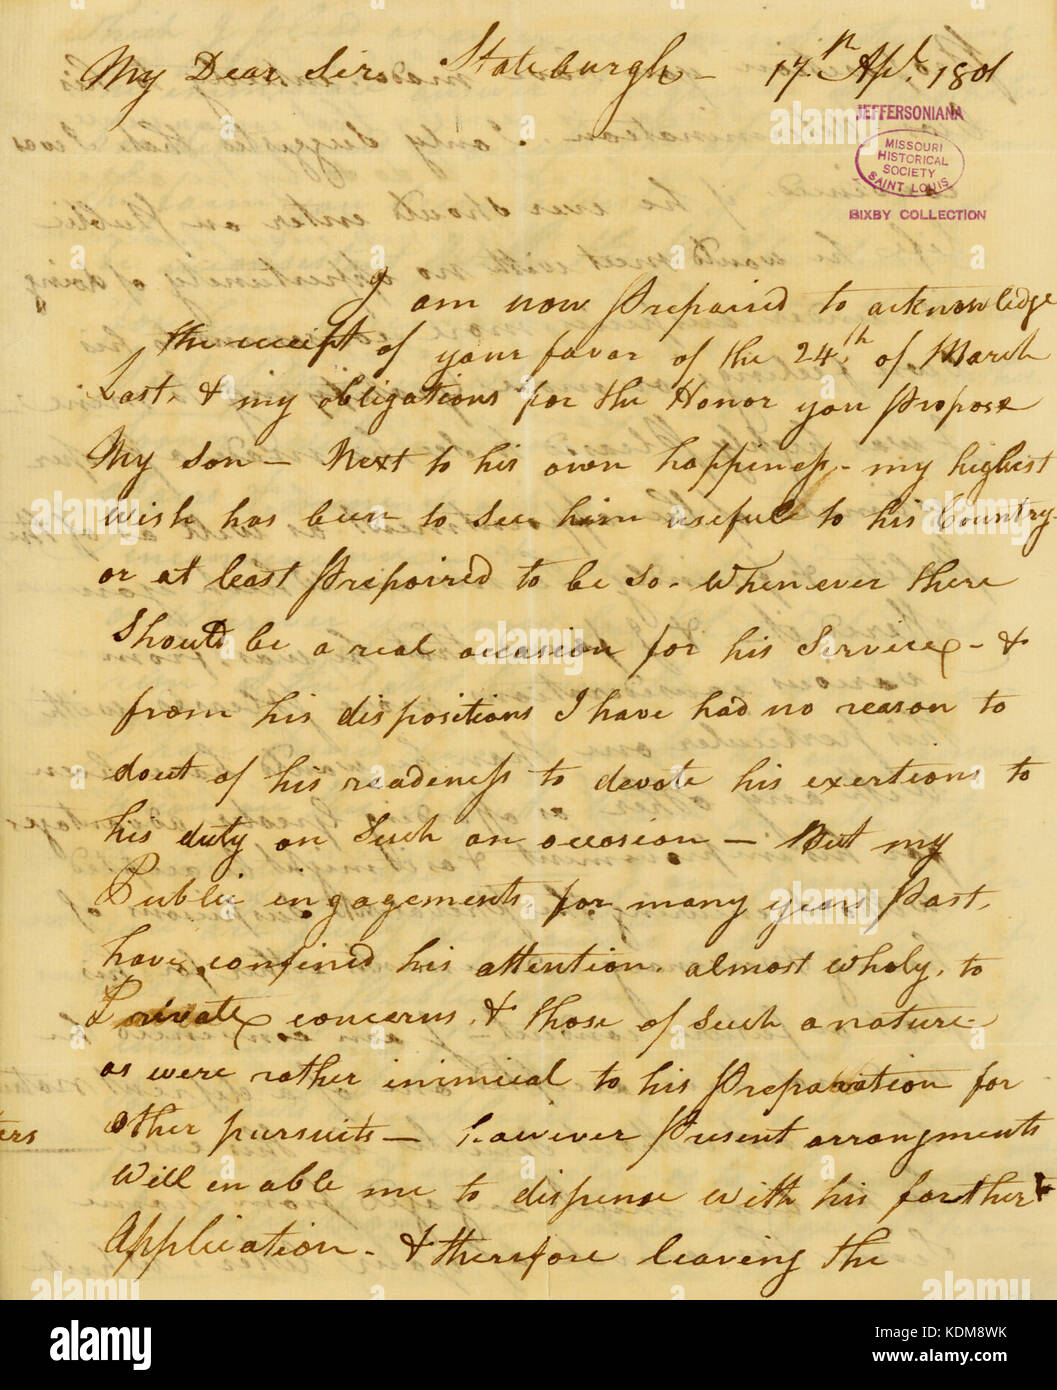 My Dear Sir Stateburgh - 17.th Apl. 1801
JEFFERSONIANA
MISSOURI
HISTORICAL
SOCIETY
SAINT LOUIS
BIXBY COLLECTION
I am now Prepaired to acknowledge
the receipt of your favor of the 24.th of March
Last, & my obligations for the Honor you Propose
My son — Next to his own happiness - my highest
wish has been to see him useful to his Country -
or at least Prepaired to be so. Whenever there
Should be a real occasion for his Service - &
from his dispositions I have had no reason to
dout of his readeness to devote his exertions to
his duty on Such an occasion — But my
Public engagements, for many years Past,
have confined his attention, almost wholy, to
Private concerns, & those of such a nature
as were rather inimical to his Preparation for
other pursuits — however Present arrangments
will enable me to dispense with his farther
Application - & therefore leaving the
ters
alamy
alamy stock photo
KDM8WK
www.alamy.com